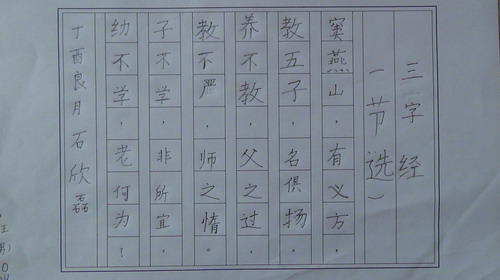 三字经
（节选）
窦燕山，有义方，
教五子，名俱扬，
养不教，父之过，
教不严，师之惰。
子不学，非所宜，
幼不学，老何为！
丁酉良月石欣磊